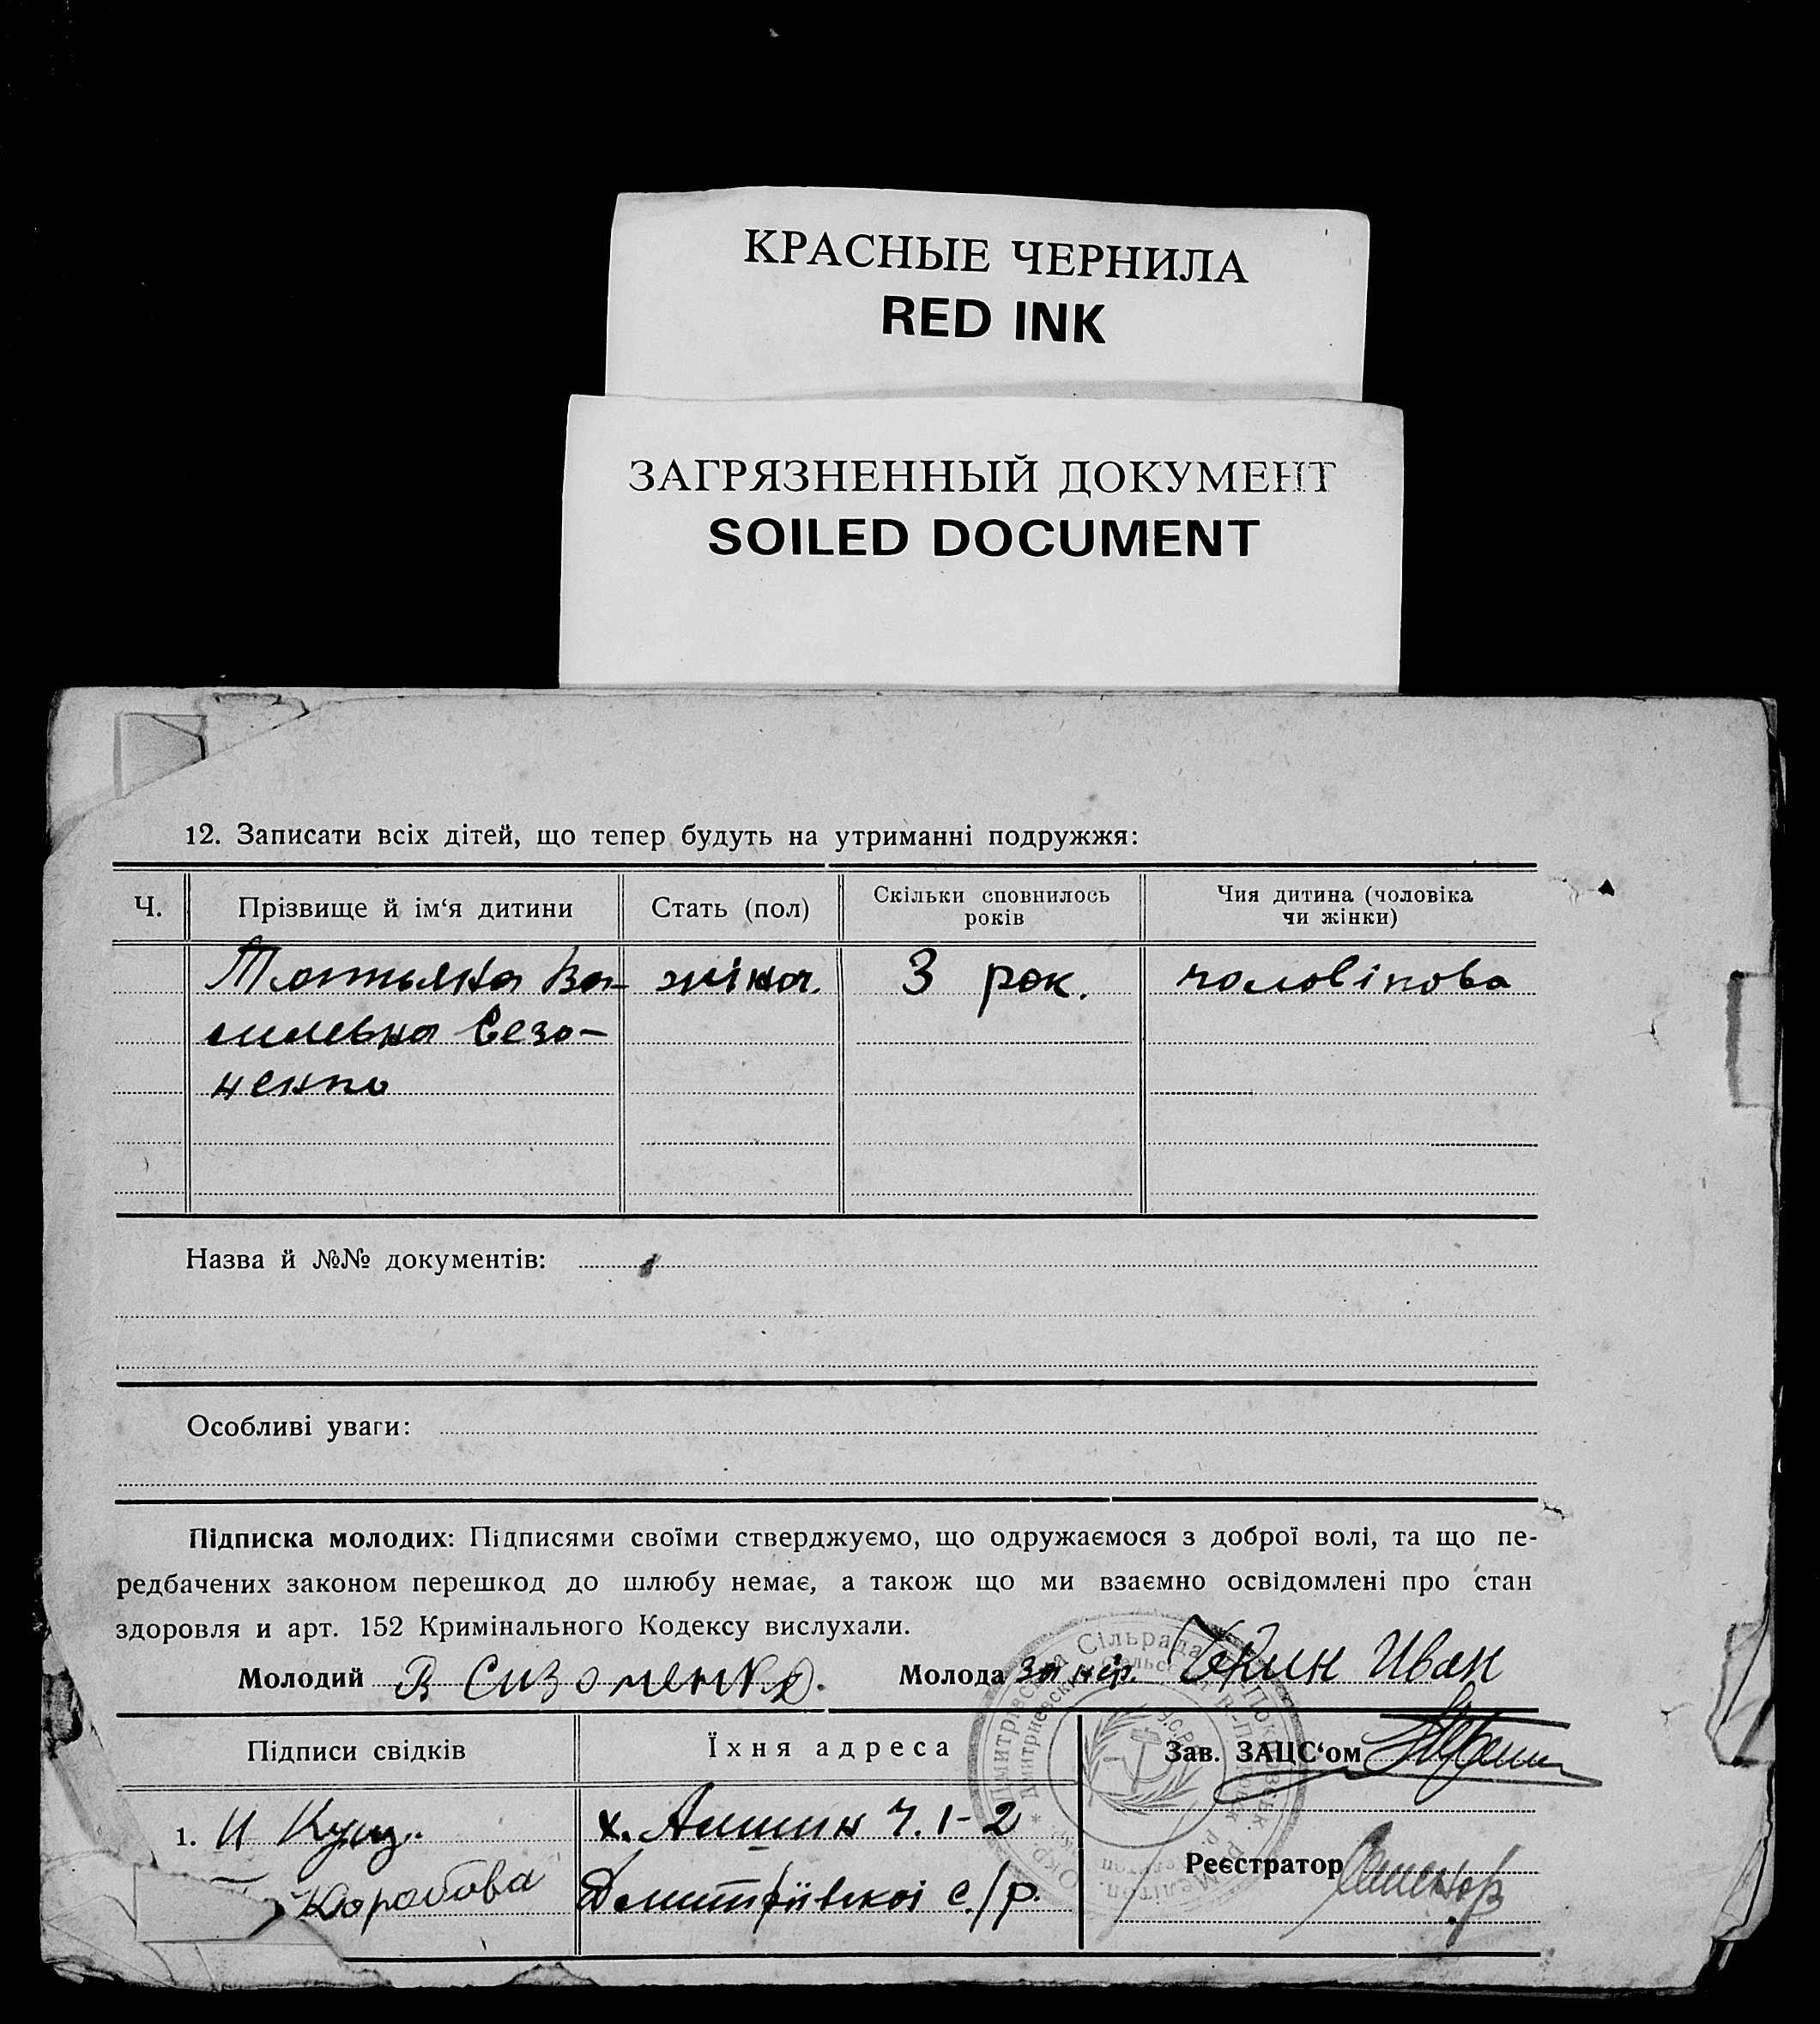 КРАСНЫЕ ЧЕРНИЛА
RED INK
ЗАГРЯЗНЕННЫЙ ДОКУМЕНТ
SOILED DOCUMENT
12. Записати всіх дітей, що тепер будуть на утриманні подружжя:
Ч. Прізвище й ім‘я дитини Стать (пол) Скільки сповнилось років Чия дитина (чоловіка чи жінки)
Татьяна Ва- жіноч. 3 рок. чоловікова
силевна Сезо-
ненко
Назва й №№ документів:
Особливі уваги:
Підписка молодих: Підписями своїми стверджуємо, що одружаємося з доброї волі, та що пе-
редбачених законом перешкод до шлюбу немає, а також що ми взаємно освідомлені про стан
здоровля и арт. 152 Кримінального Кодексу вислухали.
Молодий В Сизоненко. Молода за нєр. Иван
Підписи свідків Їхня адреса Зав. ЗАЦС‘ом
1. И х. Ч. 1-2
Коробова Дмитріївскої с/р. Реєстратор
Дмитрівська Сільрада